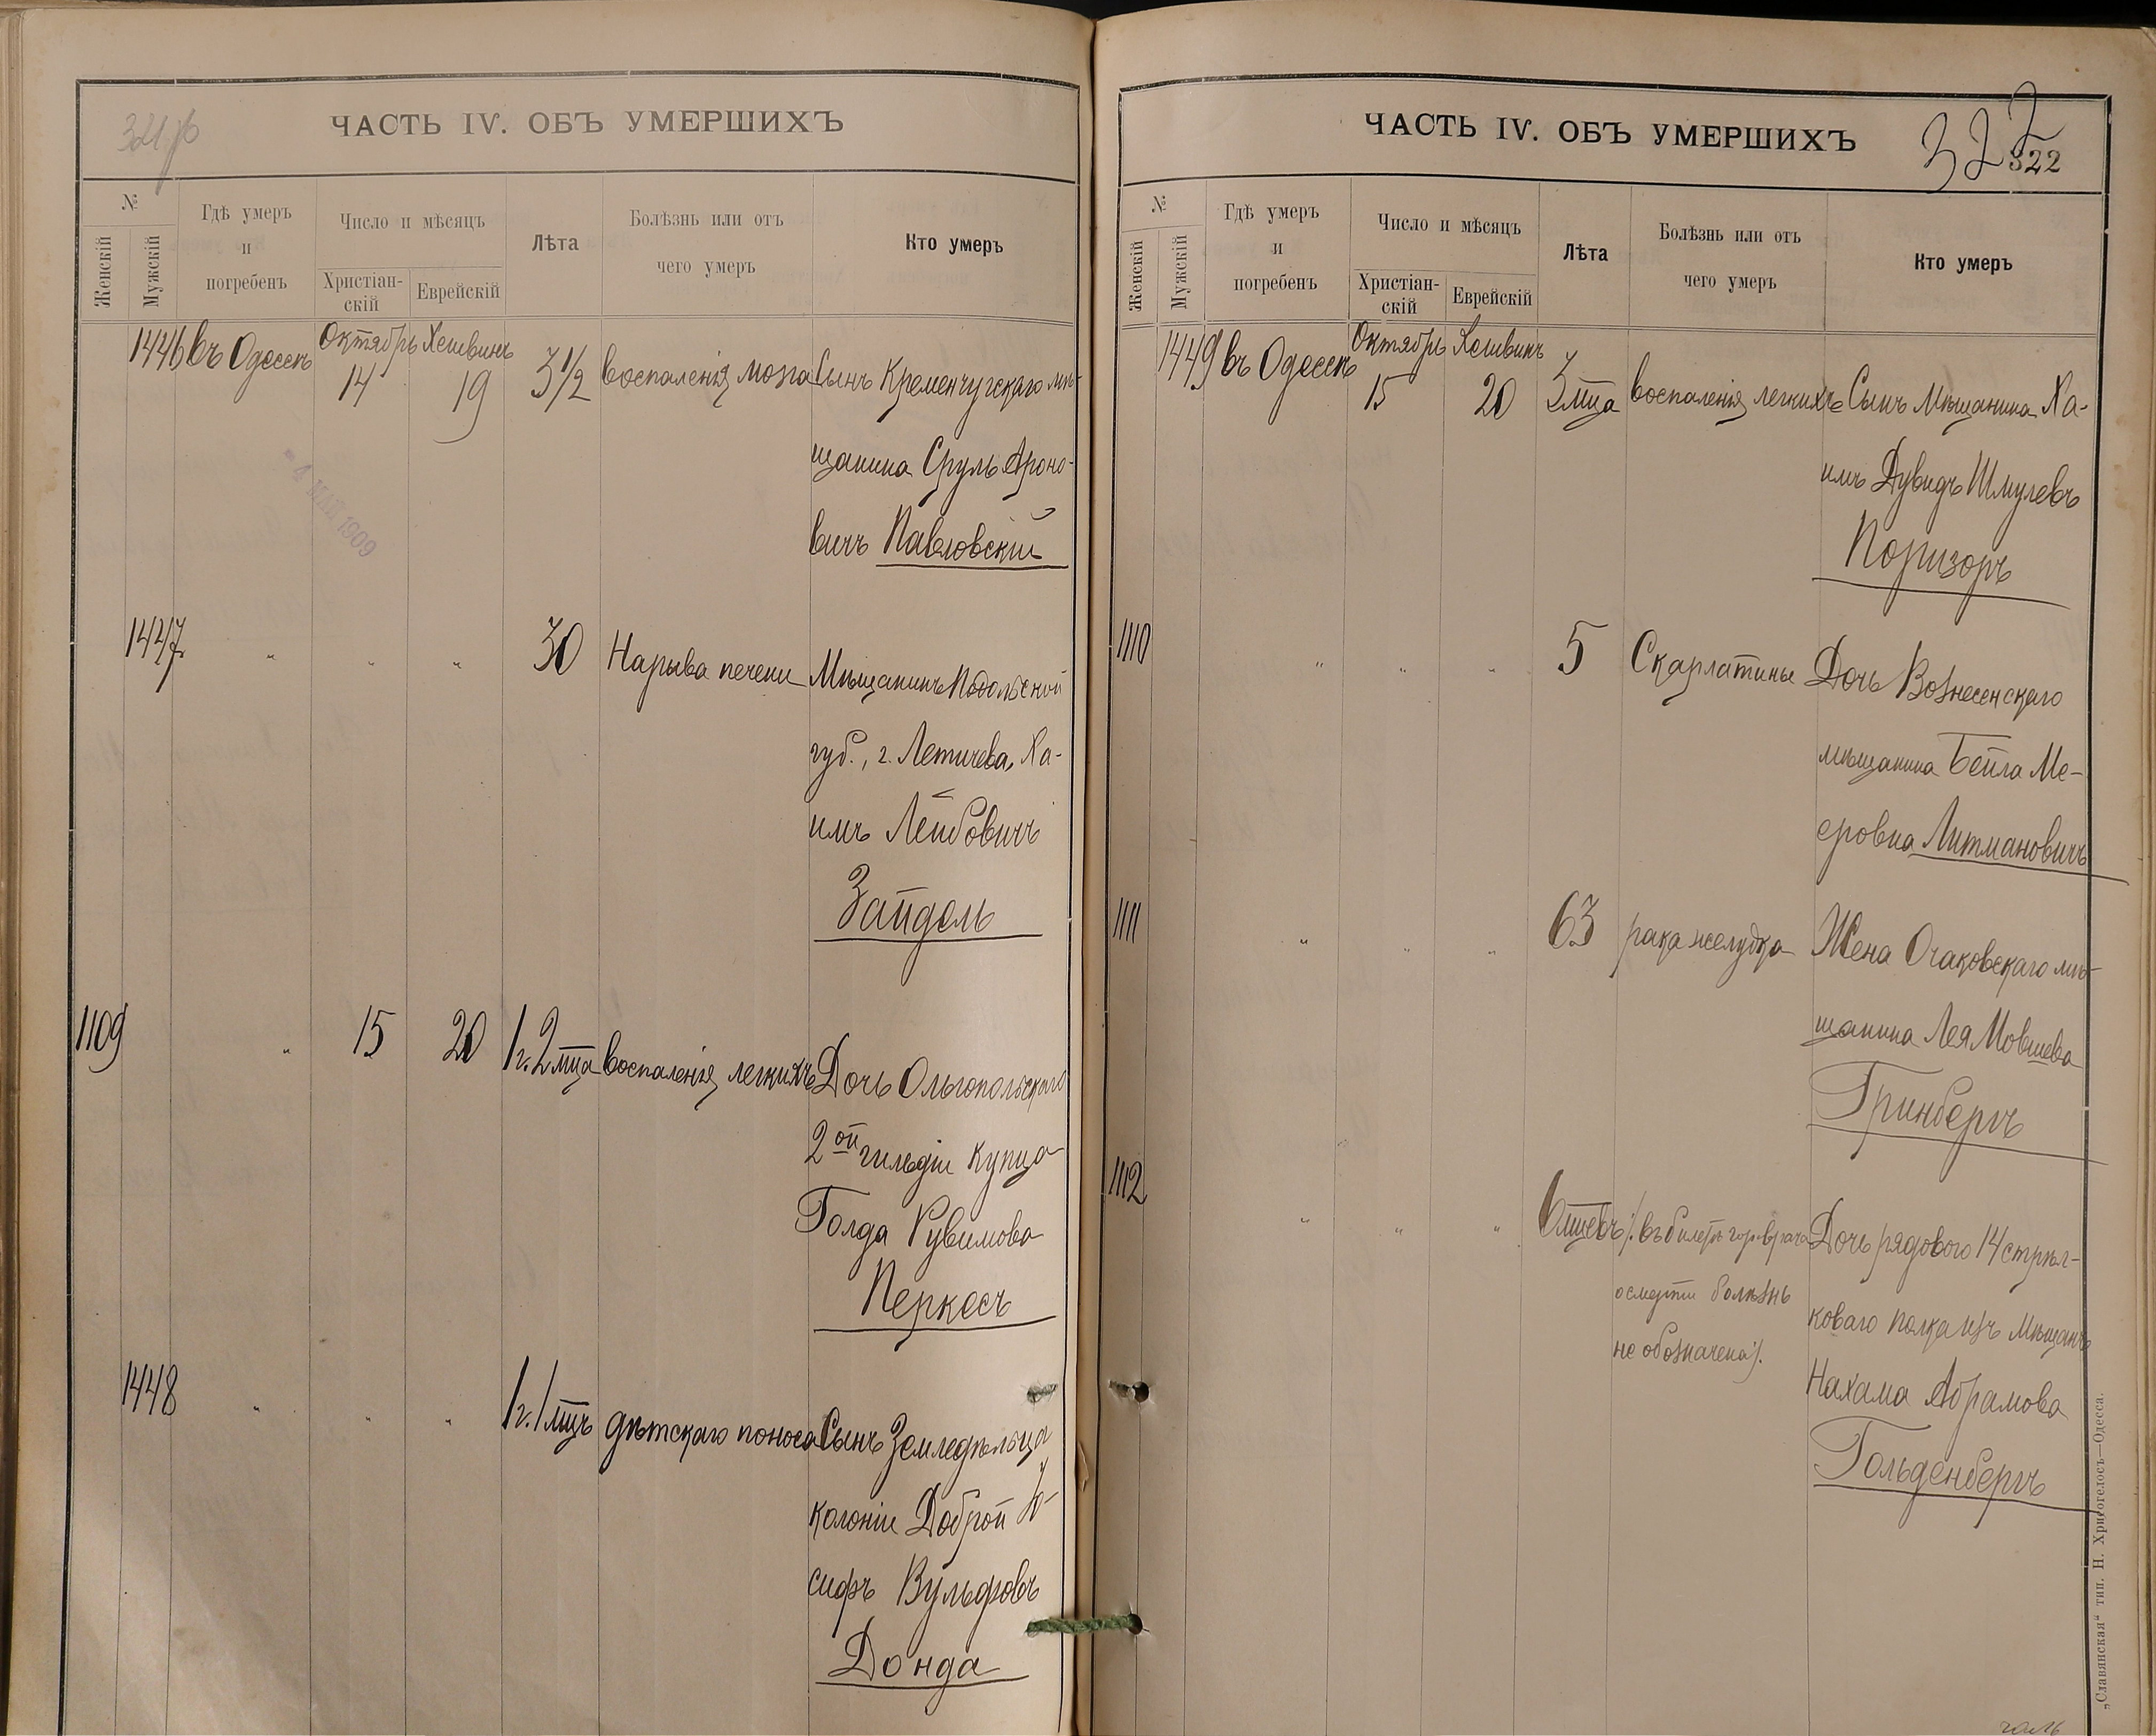 321 об
ЧАСТЬ IV. ОБЪ УМЕРШИХЪ
№
Женскій
Мужскій
Гдѣ умеръ
и
погребенъ
Число и мѣсяцъ
Христіан-
скій
Еврейскій
Лѣта
Болѣзнь или отъ
чего умеръ
Кто умеръ
1446 въ Одессѣ Октябрь 14 Хешвинъ 19 3½ воспаленія мозга Сынъ Кременчугскаго мѣ-
щанина Сруль Ароно-
вичъ Павловскій
- 4 МАЯ 1909
1447 " " " 30 Нарыва печени Мѣщанинъ Подольской
губ., г. Летичева Ха-
имъ Лейбовичъ
Зайдель
1109 " 15 20 1 г. 2 мца воспаленія легкихъ Дочь Ольгопольскаго
2ой гильдіи купца
Голда Рувимова
Перкесъ
1448 " " " 1 г. 1 мцъ дѣтскаго поноса Сынъ Земледѣльца
колоніи Доброй Іо-
сифъ Вульфовъ
Донда
ЧАСТЬ IV. ОБЪ УМЕРШИХЪ
322
322
№
Женскій
Мужскій
Гдѣ умеръ
и
погребенъ
Число и мѣсяцъ
Христіан-
скій
Еврейскій
Лѣта
Болѣзнь или отъ
чего умеръ
Кто умеръ
1449 въ Одессѣ Октябрь 15 Хешвинъ 20 3 мца воспаленія легкихъ Сынъ Мѣщанина Ха-
имъ Дувидъ Шмулевъ
Поризоръ
1110 " " " 5 Скарлатины Дочь Вознесенскаго
мѣщанина Бейла Ме-
еровна Литмановичъ
1111 " " " 63 рака желудка Жена Очаковскаго мѣ-
щанина Лея Мовшева
Гринбергъ
1112 " " " 6 мцевъ /. въ билетѣ гор. врача Дочь рядового 14 стрѣл-
о смерти болѣзнь
коваго полка изъ мѣщанъ
не обозначена /.
Нахама Абрамова
Гольденбергъ
„Славянская“ тип. Н. Хрисогелосъ—Одесса.